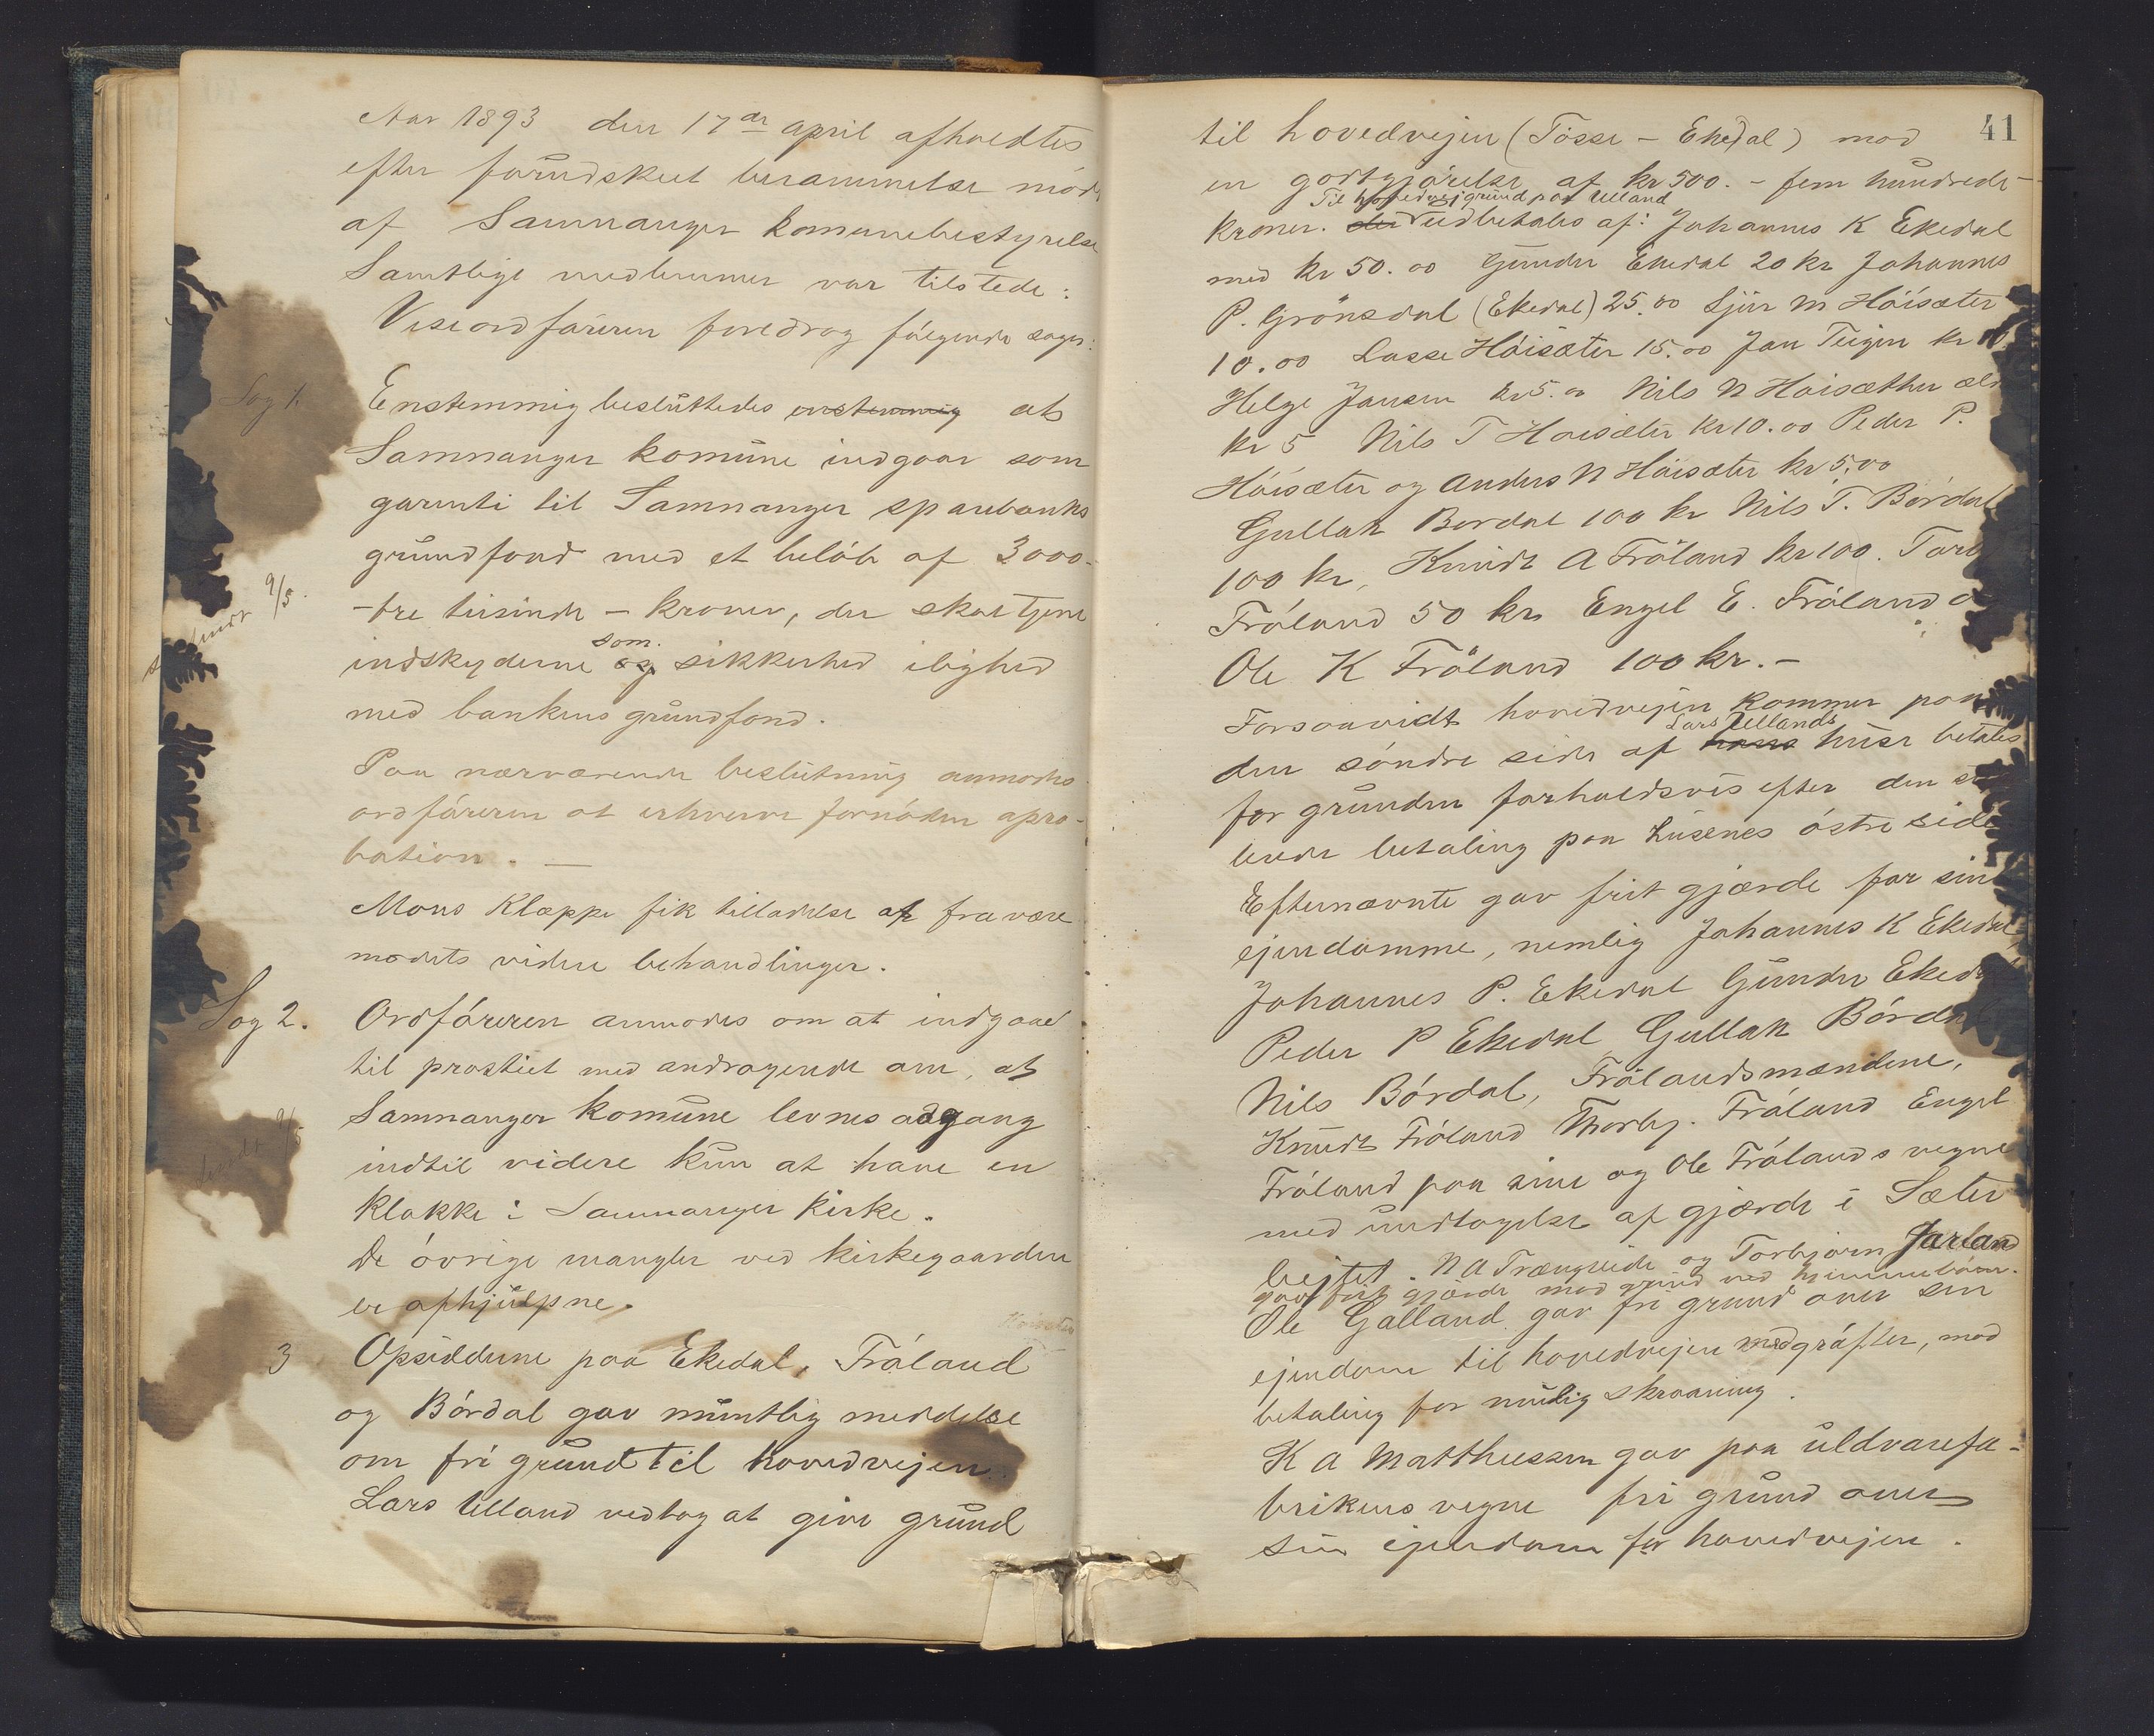 Aar 1893 den 17de april afholdtes
efter forudskeet berammelse møde
af Samnanger komunebestyrelse
Samtlige medlemmer var tilstede:
Viseordføreren foredrog følgende sager:
Sag 1. Enstemmig besluttedes enstemmig at
Samnanger komune indgaar som
garenti til Samnanger sparebanks
grundfond med et beløb af 3000-
-tre tusinde - kroner, der skal tjene
9/5.
som.
indskyderne og sikkerhed ilighed
med bankens grundfond.
Paa nærværende beslutning anmodes
ordføreren at erhverve fornøden apro-
bation. —
Mons Kleppe fik tilladelse at fravære
mødets videre behandlinger.
Sag 2. Ordføreren anmodes om at indgaae
til prostiet med andragende om, at
Samnanger komune levnes adgang
sendt 9/5
indtil videre kun at have en
klokke i Samnanger kirke.
De øvrige mangler ved kirkegaarden
er afhjulpne.
Høisæter
3 Opsidderne paa Ekedal, Frøland
og Børdal gav mundtlig meddelse
om fri grund til hovedvejen
Lars Ulland vedtog at give grund
41
til hovedvejen (Tøsse - Ekedal) mod
en godtgjørelse af kr 500. - fem hundrede -
Til hovedvejgrund paa Ulland
kroner. der udbetales af: Johannes K Ekedal
med kr 50.00 Gunder Ekedal 20 kr Johannes
P. Grønsdal (Ekedal) 25.00 Sjur M Høisæter
10.00 Lasse Høisæter 15.00 Jan Teigen kr
Helge Jansen kr 5.00 Nils N Høisæther
kr 5 Nils T Høisæter kr 10.00 Peder P.
Høisæter og Anders N Høisæter kr 5,00
Gullak Børdal 100 kr Nils T. Børdal
100 kr, Knudt A Frøland kr 100.
Frøland 50 kr Engel E. Frøland
Ole K Frøland 100 kr.-
Forsaavidt hovedvejen kommer paa
Lars Ullands
den søndre side af huse betales
for grunden forholdsvis efter den
betaling paa husenes østre side
Efternævnte gav frit gjærde for sine
ejendomme, nemlig Johannes K Ekedal,
Johannes P. Ekedal Gunder Ekedal
Peder P Ekedal Gullak Børdal
Nils Børdal, Frølandsmændene,
Knudt Frøland Thorbj. Frøland Engel
Frøland paa sine og Ole Frølands vegne
med undtagelse af gjærde i Sæter
bejtet. N A Trængreide og Torbjørn Jarland
gav frit gjærde med grund ved
Ole Galland gav fri grund over sin
ejendom til hovedvejen med grøfter, mod
betaling for mulig skraaning.
K A Matthiessen gav paa uldvarefa-
brikens vegne fri grund over
sin ejendom for hovedvejen.